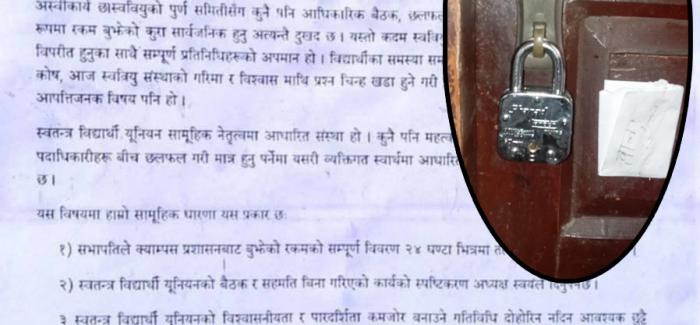 अस्वीकार्य छ।स्ववियुको पुर्ण समितीसँग कुनै पनि आधिकारिक बैठक, छलफल
रूपमा रकम बुझेको कुरा सार्वजनिक हुनु अत्यन्तै दुखद छ । यस्तो कदम स्ववि
विपरीत हुनुका साथै सम्पूर्ण प्रतिनिधिहरूको अपमान हो । विद्यार्थीका समस्या सम
कोष, आज स्ववियु संस्थाको गरिमा र विश्वास माथि प्रश्न चिन्ह खडा हुने गरी
आपत्तिजनक विषय पनि हो ।
स्वतन्त्र विद्यार्थी यूनियन सामूहिक नेतृत्वमा आधारित संस्था हो । कुनै पनि महत्व
पदाधिकारीहरू बीच छलफल गरी मात्र हुनु पर्नेमा यसरी व्यक्तिगत स्वार्थमा आधारित
छ ।
यस विषयमा हाम्रो सामूहिक धारणा यस प्रकार छः
१) सभापतिले क्याम्पस प्रशासनबाट बुझेको रकमको सम्पूर्ण विवरण २४ घण्टा भित्रमा
२) स्वतन्त्र विद्यार्थी यूनियनको बैठक र सहमति बिना गरिएको कार्यको स्पष्टिकरण अध्यक्ष स्वयंले दिनुपर्नेछ ।
३ स्वतन्त्र विद्यार्थी यूनियनको विश्वासनीयता र पारदर्शिता कमजोर बनाउने गतिविधि दोहोरिन नदिन आवश्यक